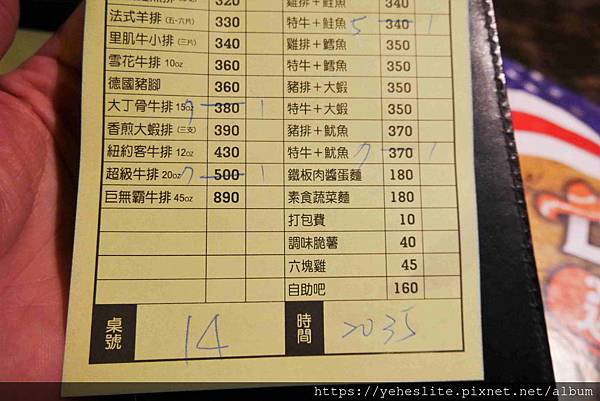 320 340
法式羊排(五-六片) 330 特牛+鮭魚 5 340 1
里肌牛小排(三片) 340 雞排+鱈魚 350
雪花牛排 10oz 360 特牛+鱈魚 350
德國豬腳 360 豬排+大蝦 350
大丁骨牛排 15oz 7 380 1 特牛+大蝦 350
香煎大蝦排(三支) 390 豬排+魷魚 370
紐約客牛排 12oz 430 特牛+魷魚 7 370 1
超級牛排 20oz 7 500 1 鐵板肉醬蛋麵 180
巨無霸牛排 45oz 890 素食蔬菜麵 180
打包費 10
調味脆薯 40
六塊雞 45
自助吧 160
桌號 14 時間 2035
https://yeheslite.pixnet.net/album